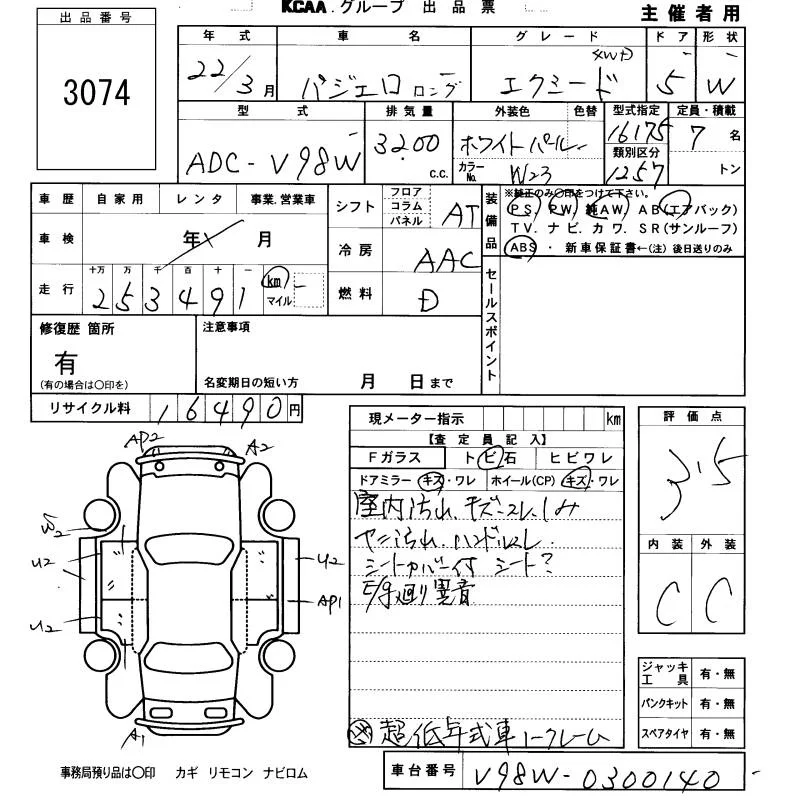 KCAA グループ 出品票
主催者用
出品番号
3074
年式 車名 グレード ドア 形状
22/3月 パジェロ ロング エクシード 4WD 5 W
型式 排気量 外装色 色替 型式指定 定員・積載
ADC-V98W 3200 c.c. ホワイトパール 16175 7名
カラーNo. W23 類別区分 1257 トン
車歴 自家用 レンタ 事業.営業車
車検 年 月
走行 十万 万 千 百 十 一
253491 km マイル
シフト フロア コラム パネル AT
冷房 AAC
燃料 D
装備品
※純正のみ〇印をつけて下さい。
PS. PW. 純AW. AB(エアバック)
TV. ナビ. カワ. SR(サンルーフ)
ABS・新車保証書←(注)後日送りのみ
セールスポイント
修復歴 箇所
有
(有の場合は〇印を)
注意事項
名変期日の短い方 月 日まで
リサイクル料 16490円
現メーター指示 km
【査定員記入】
Fガラス トビ石 ヒビワレ
ドアミラー キズ・ワレ ホイール(CP) キズ・ワレ
室内汚れ.キズ.スレ.シミ
ヤニ汚れ.ハンドルスレ.
シートカバー付 シート?
E/g廻り異音
超低年式車ノークレーム
評価点
3.5
内装 外装
C C
ジャッキ工具 有・無
パンクキット 有・無
スペアタイヤ 有・無
AP2 A2
W2
U2 U2
AP1
U2
A1
事務局預り品は〇印 カギ リモコン ナビロム
車台番号 V98W-0300140